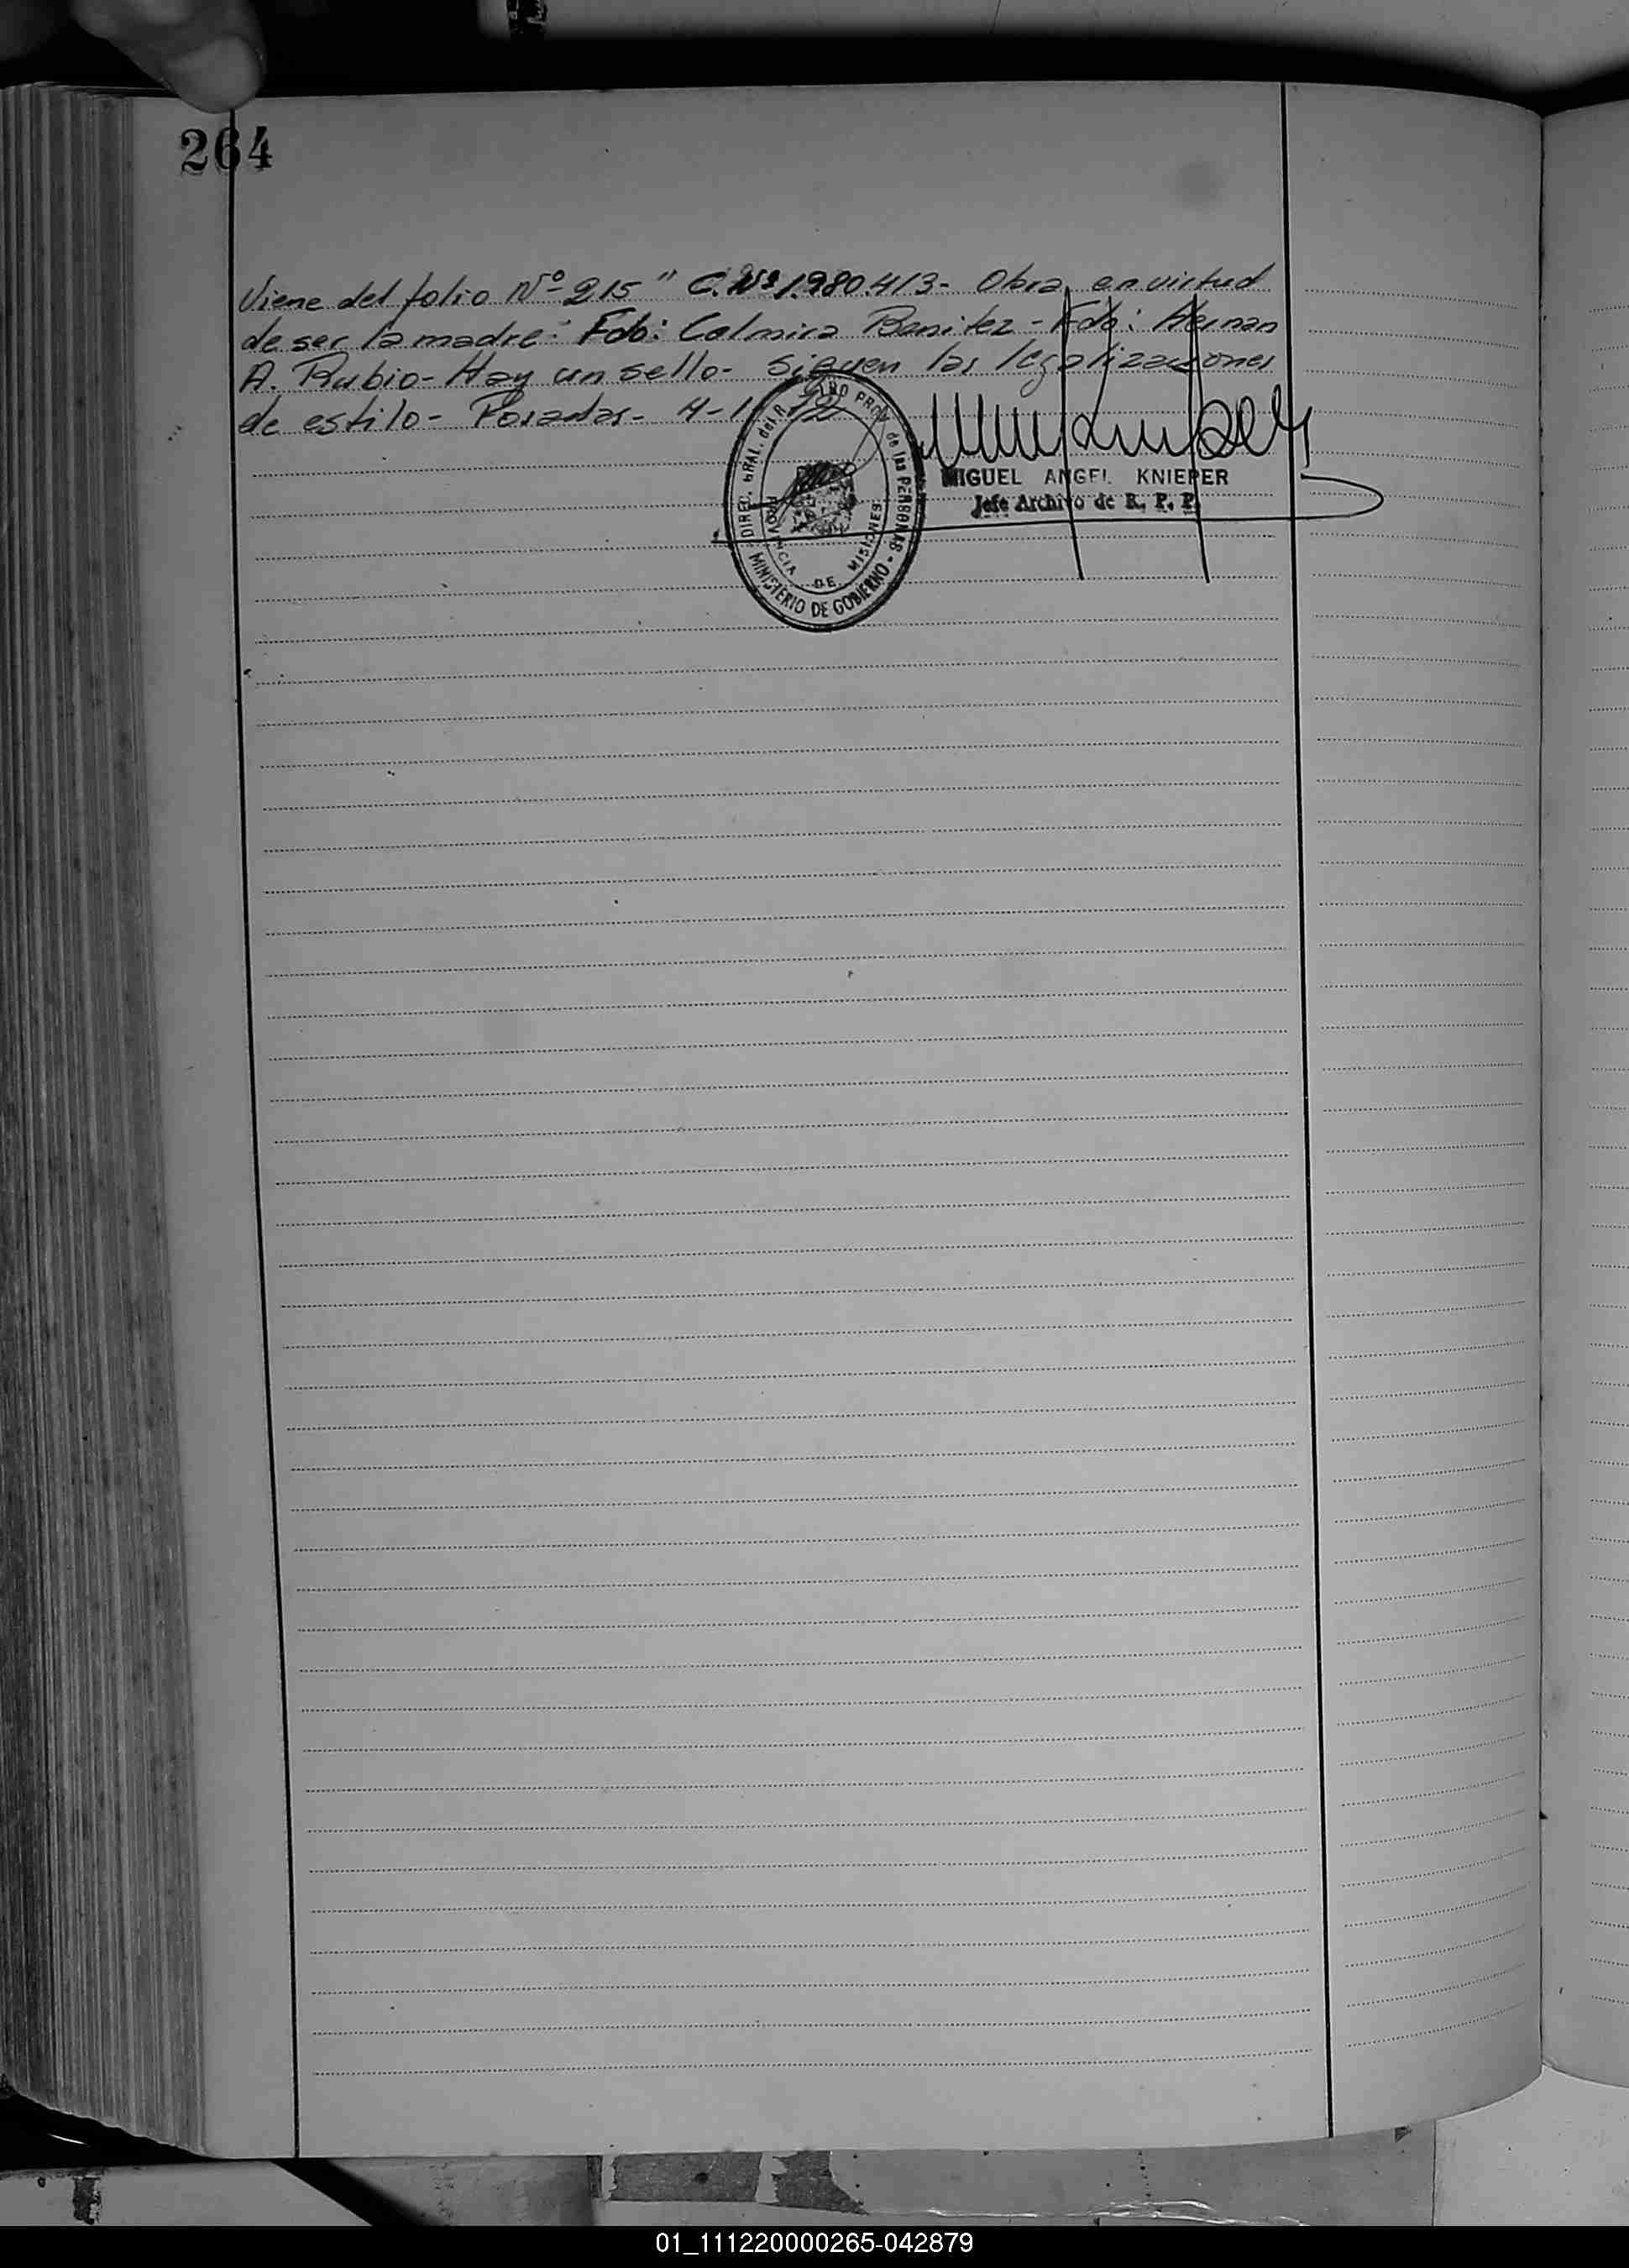 264
Viene del folio Nº 215" C. Nº 1.980.413- Obra en virtud
de ser la madre: Fdo: Calmira Benitez - Fdo: Hernan
A. Rubio - Hay un sello - Siguen las legalizaciones
de estilo - Posadas -
DIREC. GRAL. del R. PROV. de las PERSONAS
PROVINCIA DE MISIONES
MINISTERIO DE GOBIERNO
MIGUEL ANGEL KNIEPER
Jefe Archivo de R. P. P.
01_111220000265-042879